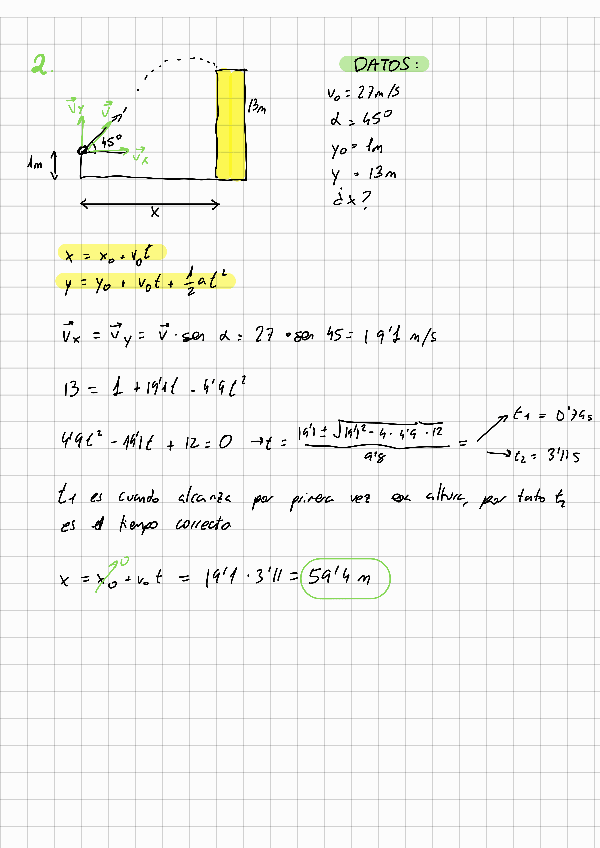 2.
DATOS:
v₀ = 27 m/s
α = 45º
y₀ = 1m
y = 13 m
¿x?
13m
v⃗y v⃗
45º
v⃗x
1m
x
x = x₀ + v₀t
y = y₀ + v₀t + 1/2 at²
v⃗x = v⃗y = v⃗ · sen α = 27 · sen 45 = 19'1 m/s
13 = 1 + 19'1t - 4'9t²
4'9t² - 19'1t + 12 = 0 → t = (19'1 ± √(19'1² - 4 · 4'9 · 12))/9'8 = t₁ = 0'79s
t₂ = 3'11s
t₁ es cuando alcanza por primera vez esa altura, por tanto t₂
es el tiempo correcto
x = x₀ 0 + v₀ t = 19'1 · 3'11 = 59'4 m